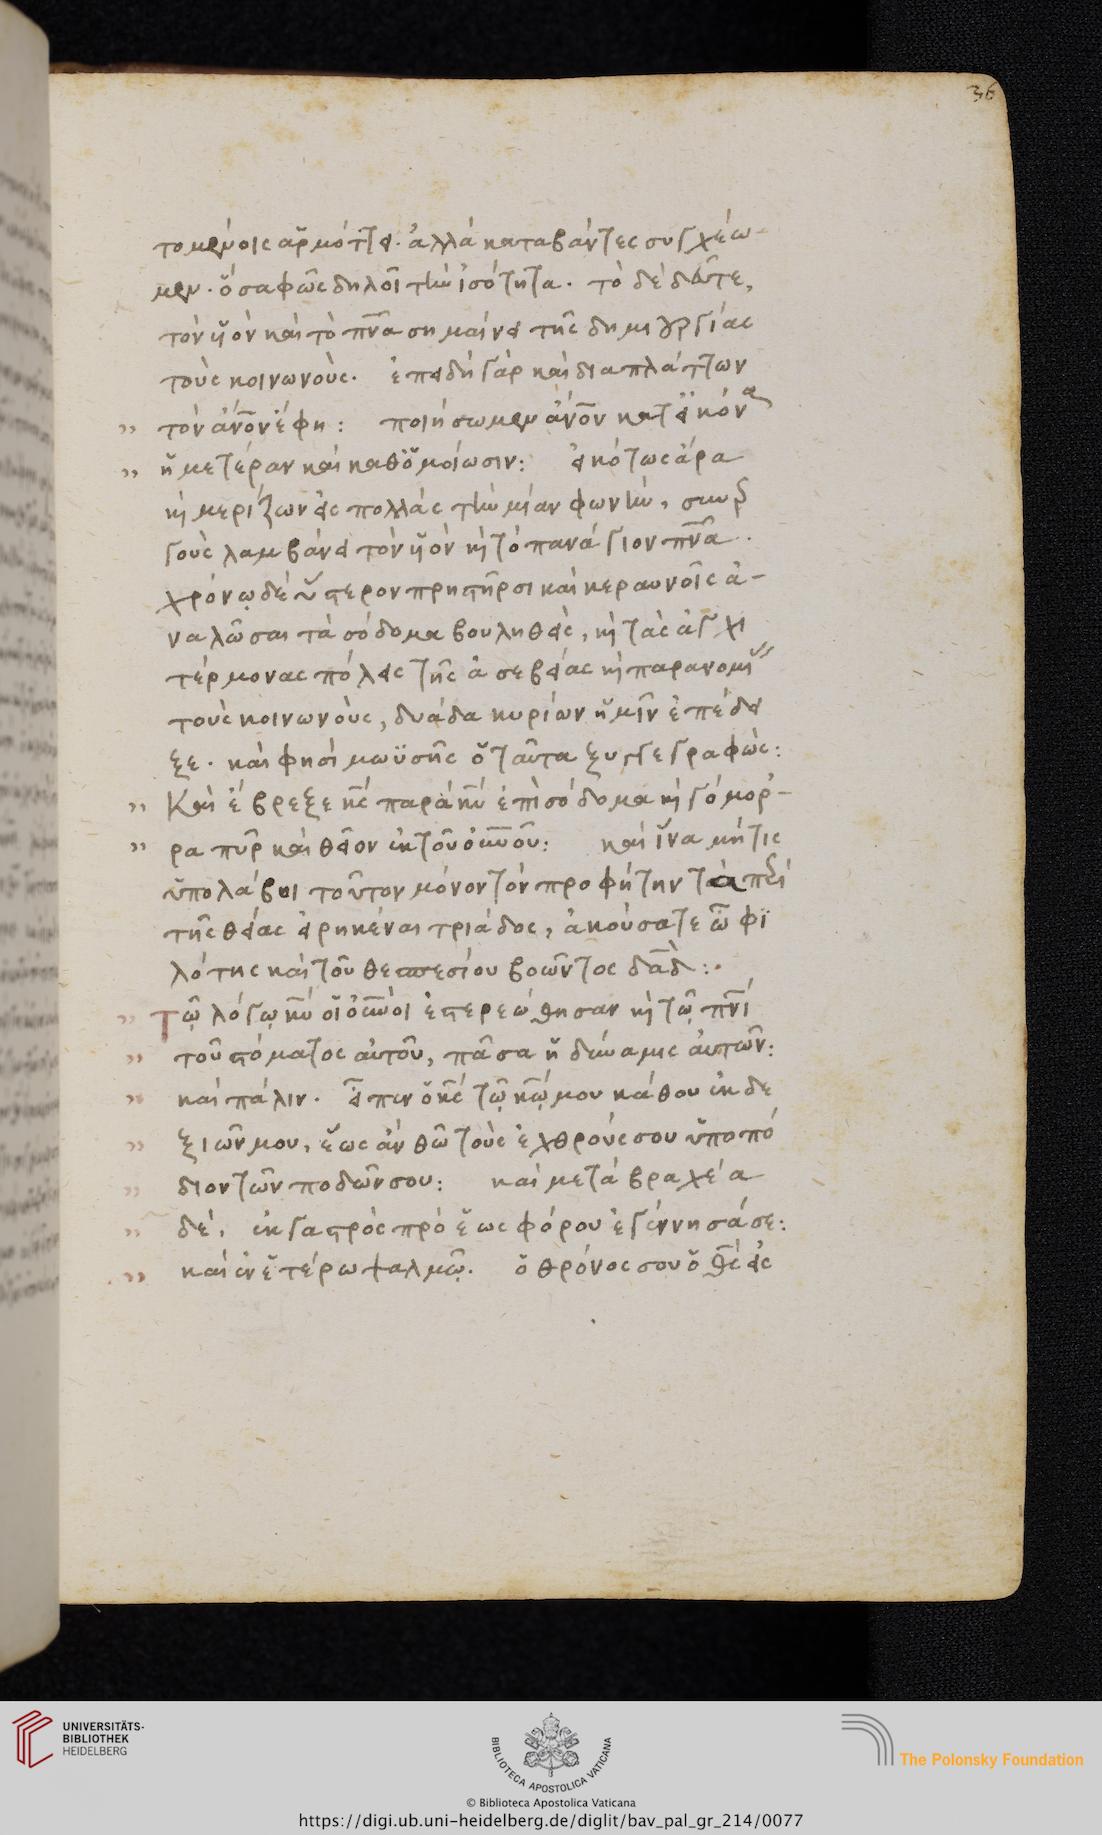 36
τομένοις ἁρμόττει. ἀλλὰ καταβάντες συγχέω-
μεν. ὃ σαφῶς δηλοῖ τὴν ἰσότητα. τὸ δὲ δεῦτε,
τὸν υἱὸν καὶ τὸ πν̅α σημαίνει τῆς δημιουργίας
τοὺς κοινωνούς. ἐπειδὴ γὰρ καὶ διαπλάττων
" τὸν ἄν̅ον ἔφη: ποιήσωμεν ἄν̅ον κατ' εἰκόνα
" ἡμετέραν καὶ καθ' ὁμοίωσιν: εἰκότως ἄρα
μερίζων εἰς πολλὰς τὴν μίαν φωνήν, συνερ
γοὺς λαμβάνει τὸν υἱὸν κ̀ τὸ πανάγιον πν̅α.
χρόνῳ δὲ ὕστερον πρηστῆρσι καὶ κεραυνοῖς ἀ-
ναλῶσαι τὰ σόδομα βουληθείς, κ̀ τὰς ἀγχι
τέρμονας πόλεις τῆς ἀσεβείας κ̀ παρανομίας
τοὺς κοινωνούς, δυάδα κυρίων ἡμῖν ἐπέδει
ξε. καὶ φησὶ μωϋσῆς ὁ ταῦτα ξυγγεγραφώς:
" Καὶ ἔβρεξε κ̅ς παρὰ κ̅υ ἐπὶ σόδομα κ̀ γόμορ-
" ρα πῦρ καὶ θεῖον ἐκ τοῦ οὐ̅νοῦ: καὶ ἵνα μή τις
ὑπολάβοι τοῦτον μόνον τὸν προφήτην τὰ περὶ
τῆς θείας εἰρηκέναι τριάδος, ἀκούσατε ὦ φι
λότης καὶ τοῦ θεσπεσίου βοῶντος δα̅δ:.
" Τῷ λόγῳ κ̅υ οἱ οὐ̅νοὶ ἐστερεώθησαν κ̀ τῷ πν̅ι
" τοῦ στόματος αὐτοῦ, πᾶσα ἡ δύναμις αὐτῶν:
" καὶ πάλιν. εἶπεν ὁ κ̅ς τῷ κ̅ῳ μου κάθου ἐκ δε
" ξιῶν μου, ἕως ἂν θῶ τοὺς ἐχθρούς σου ὑποπό
" διον τῶν ποδῶν σου: καὶ μετὰ βραχέα
" δέ, ἐκ γαστρὸς πρὸ ἑωσφόρου ἐγέννησά σε:
" καὶ ἐν ἑτέρω ψαλμῷ. ὁ θρόνος σου ὁ θ̅ς εἰς
UNIVERSITÄTS-
BIBLIOTHEK
HEIDELBERG
BIBLIOTECA APOSTOLICA VATICANA
The Polonsky Foundation
© Biblioteca Apostolica Vaticana
https://digi.ub.uni-heidelberg.de/diglit/bav_pal_gr_214/0077